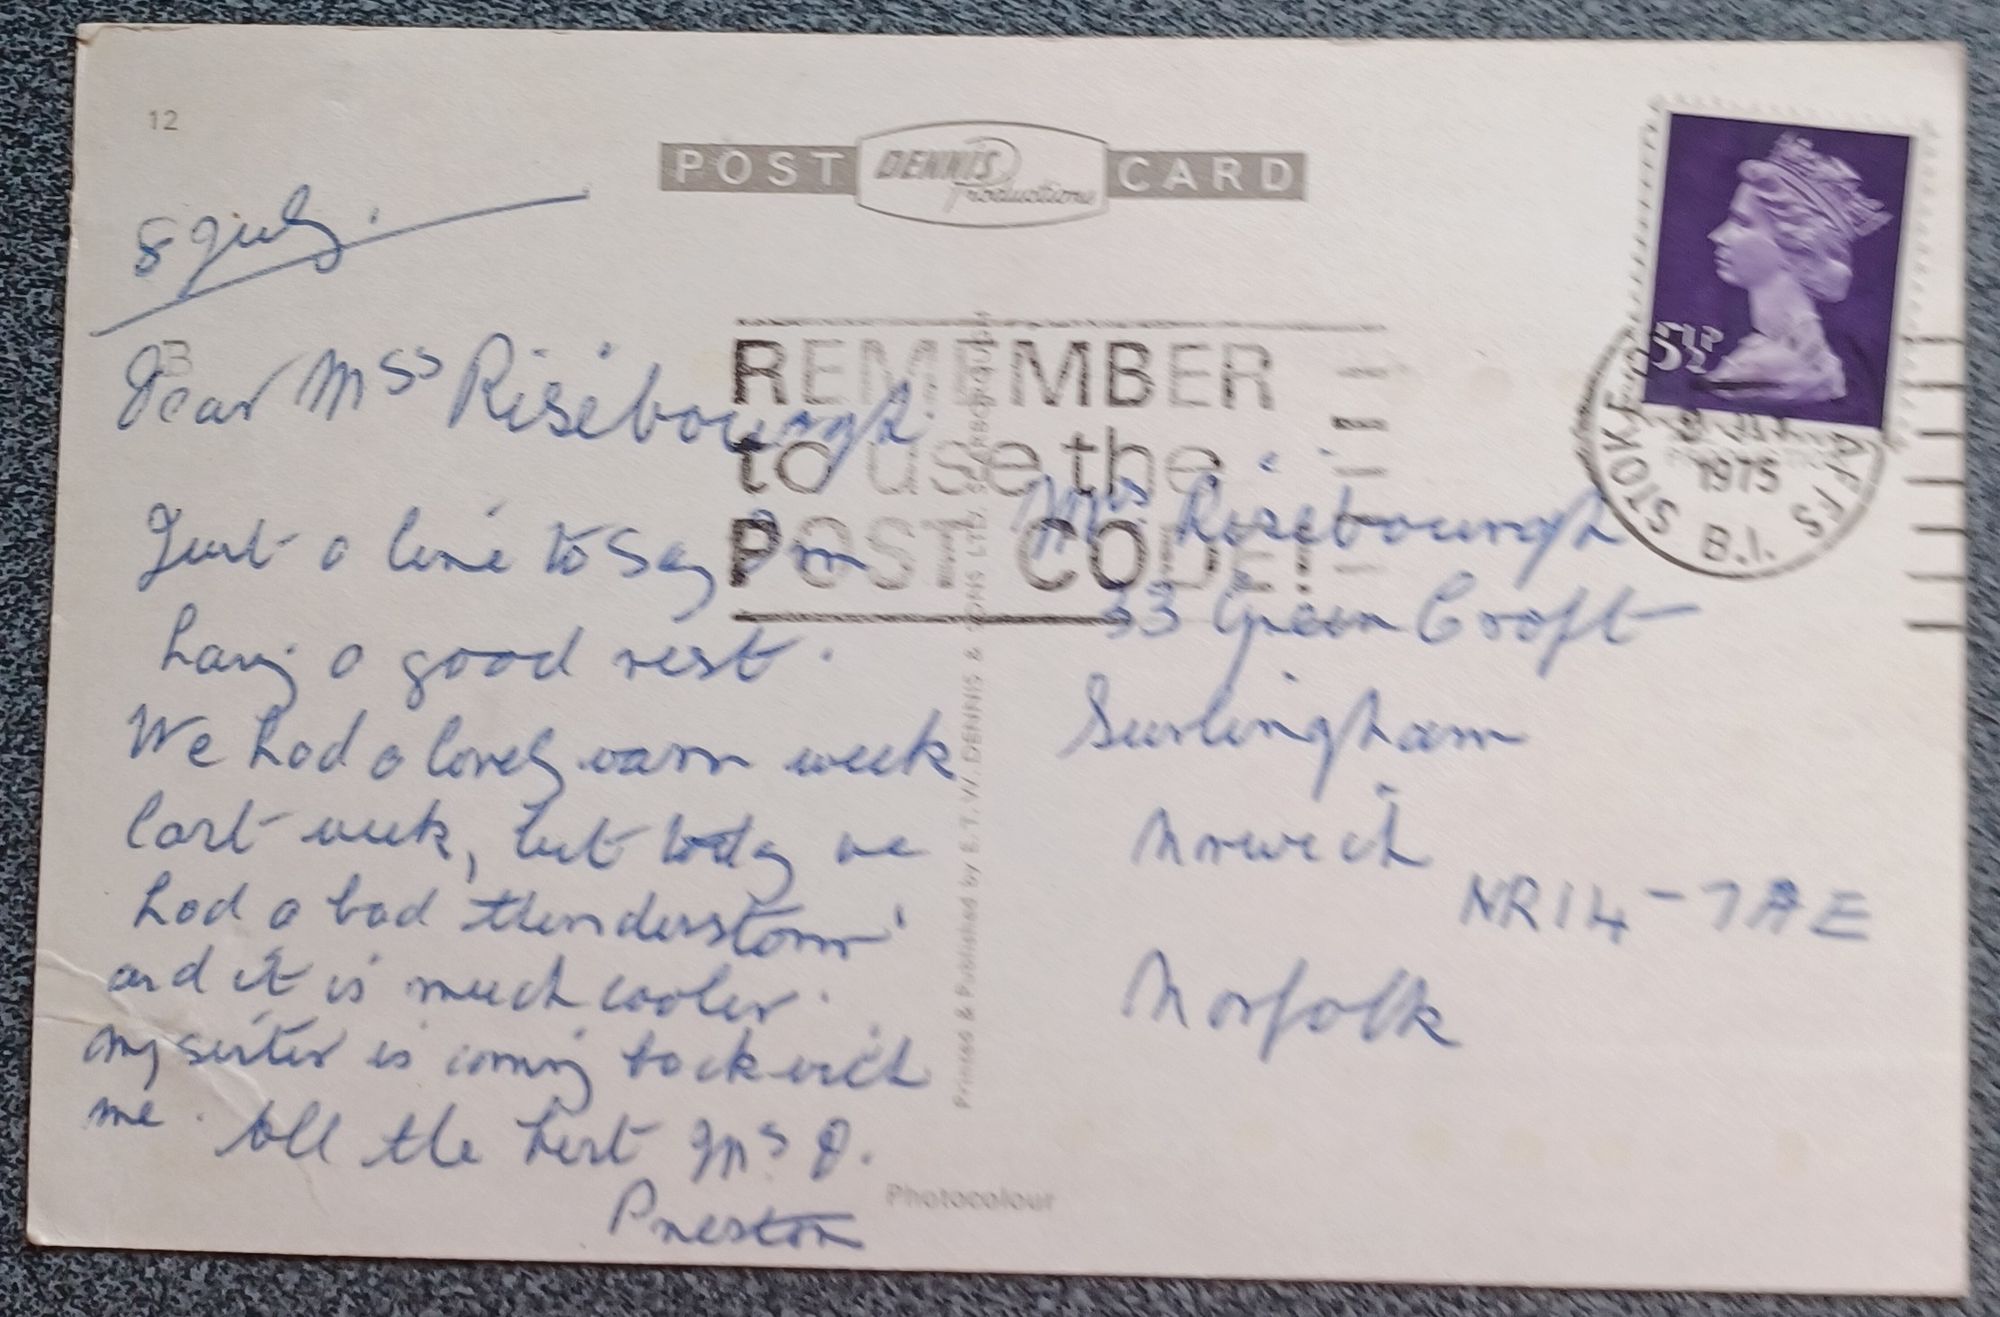 12
POST DENNIS Productions CARD
8 July.
5½P
STOKE STAFFS
1975
B.I.
REMEMBER
to use the
POST CODE!
B
Dear Mrs Risebourgh.
Just a line to say I m
having a good rest.
We had a lovely warm week
last week, but today we
had a bad thunderstorm
and it is much cooler.
My sister is coming back with
me. All the best Mrs P.
Preston
Mrs. Risebourgh
33 Green Croft
Surlingham
Norwich
NR14-7AE
Norfolk
Printed & Published by E.T.W. DENNIS & SONS LTD. SCARBOROUGH
Photocolour